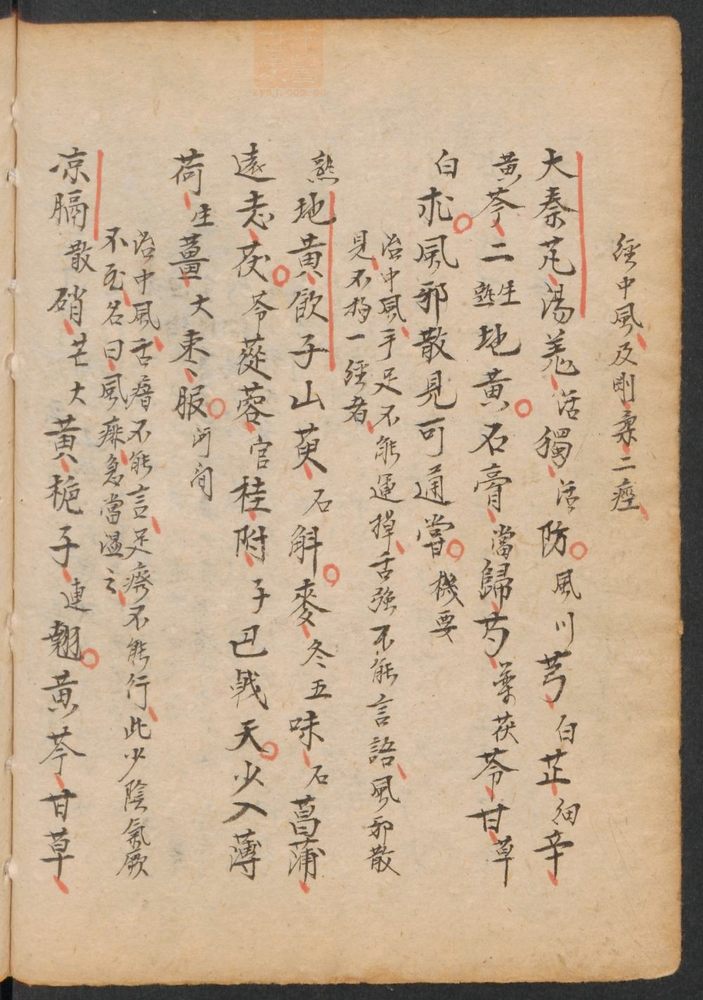 經中風及剛柔二痙
大秦艽湯羌活獨活防風川芎白芷細辛
黃芩二生熟地黃石膏當歸芍藥茯苓甘草
白朮風邪散見可通嘗機要
治中風手足不能運掉舌強不能言語風邪散
見不拘一經者
熟地黃飲子山萸石斛麥冬五味石菖蒲
遠志茯苓蓯蓉官桂附子巴戟天少入薄
荷生薑大棗服河間
治中風舌瘖不能言足痱不能行此少陰氣厥
不至名曰風痱急當溫之
凉膈散硝芒大黃梔子連翹黃芩甘草